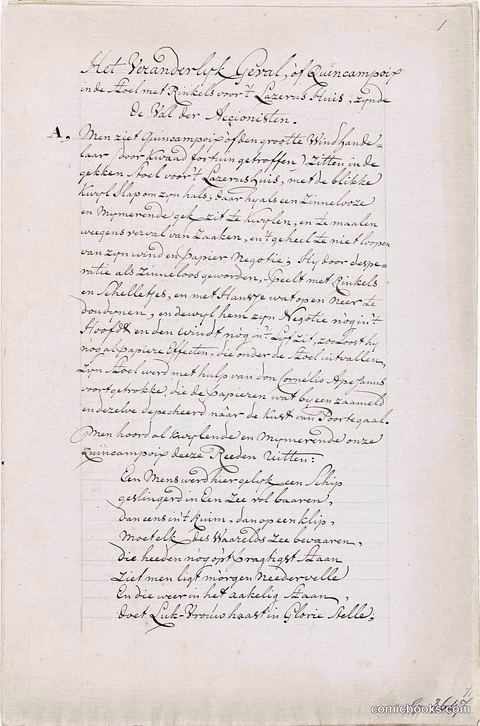 1
Het Veranderlyk Geval, of Quincampoix
in de Stoel met Rinkels voor 't Lazerus Huis, zynde
de Val der Accionisten.
A. Men ziet Quincampoix of den grootte Windhande-
laar, (door Kwaad fortuin getroffen) Zitten in de
gekken Stoel voor 't Lazerushuis, met de blikke
Kwyl Slap om zyn hals, daar hy als een Zinnelooze
en Mymerende gek zit te Kwylen, en te maalen
weegens verval van Zaaken, en 't geheel te niet loopen
van zyn wind en Papier Negotie; Hy door despe-
ratie als Zinneloos geworden, Speelt met Rinkels
en Schelletjes, en met Hansje wat op en neer te
douwynen, en dewyl hem zyn Negotie nog in 't
Hoofdt en den windt nog in 't Lyf zit, zoo lost hy
nog al papiere Effecten, die onder de Stoel uitvallen,
Zyn Stoel werd met hulp van don Cornelio Apesanus
voortgetrokke, die de Papieren wat by een zaameld
en dezelve depecheerd naar de Kust van Poortegaal.
Men hoord al Kwylende en Mymerende onze
Quincampoix deeze Reeden Uitten:
Een Mens werd hier gelyk een Schip
geslingerd in Een Zee vol baaren,
dan eens in 't Ruim, dan op een klip,
Moet elk des Waerelds Zee bevaaren,
die heeden nog op 't pragtigst Staan
Ziet men ligt morgen Needervelle
En die weer in het aakelig Staan,
doet Luk-Vrouw haast in Glorie Stelle.
comicbooks.com